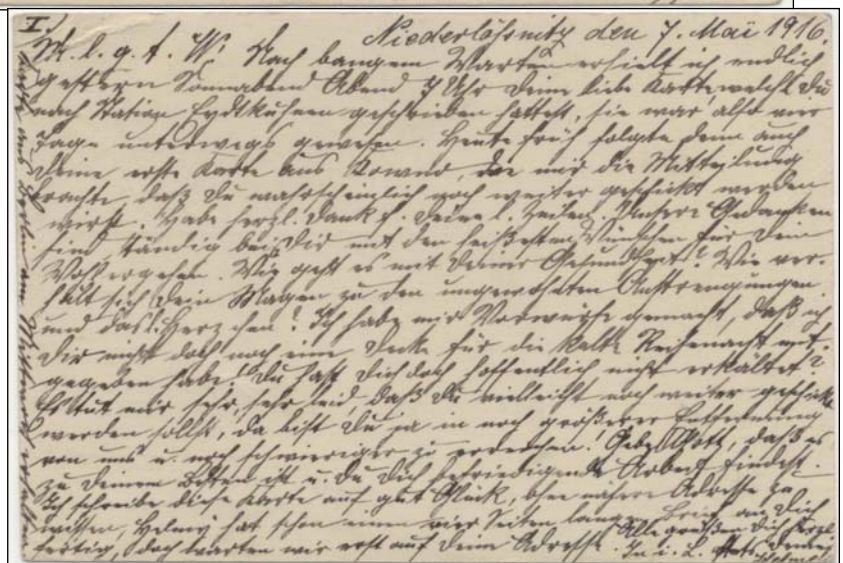 I.) Niederlößnitz den 7. Mai 1916.
M. l. g. t. W! Nach bangem Warten erhielt ich endlich
gestern Sonnabend Abend 7 Uhr Deine liebe Karte, welche Du
nach Station Eydtkuhnen geschrieben hattest, sie war also vier
Tage unterwegs gewesen. Heute früh folgte dann auch
Deine erste Karte aus Kowno, die mir die Mitteilung
brachte, daß Du wahrscheinlich noch weiter geschickt werden
wirst. Habe herzl. Dank f. Deine l. Zeilen. Unsere Gedanken
sind ständig bei Dir mit den heißesten Wünschen für Dein
Wohlergehen. Wie geht es mit Deiner Gesundheit? Wie ver-
hält sich Dein Magen zu den ungewohnten Anstrengungen
und das l. Herzchen? Ich habe mir Vorwürfe gemacht, daß ich
Dir nicht doch noch eine Decke für die kalte Reisenacht mit-
gegeben habe! Du hast Dich doch hoffentlich nicht erkältet?
Es tut mir sehr, sehr leid, daß Du vielleicht noch weiter geschickt
werden sollst, da bist Du ja in noch größerer Entfernung
von uns u. noch schwieriger zu erreichen! Gebe Gott, daß es
zu Deinem Besten ist u. Du Dich befriedigende Arbeit findest.
Ich schreibe diese Karte auf gut Glück, ohne nähere Adresse zu
wissen, Helmy hat schon einen vier Seiten langen Brief an Dich
fertig, doch warten wir erst auf Deine Adresse. Alle grüßen Dich herzl.
In i. L. stets Deine